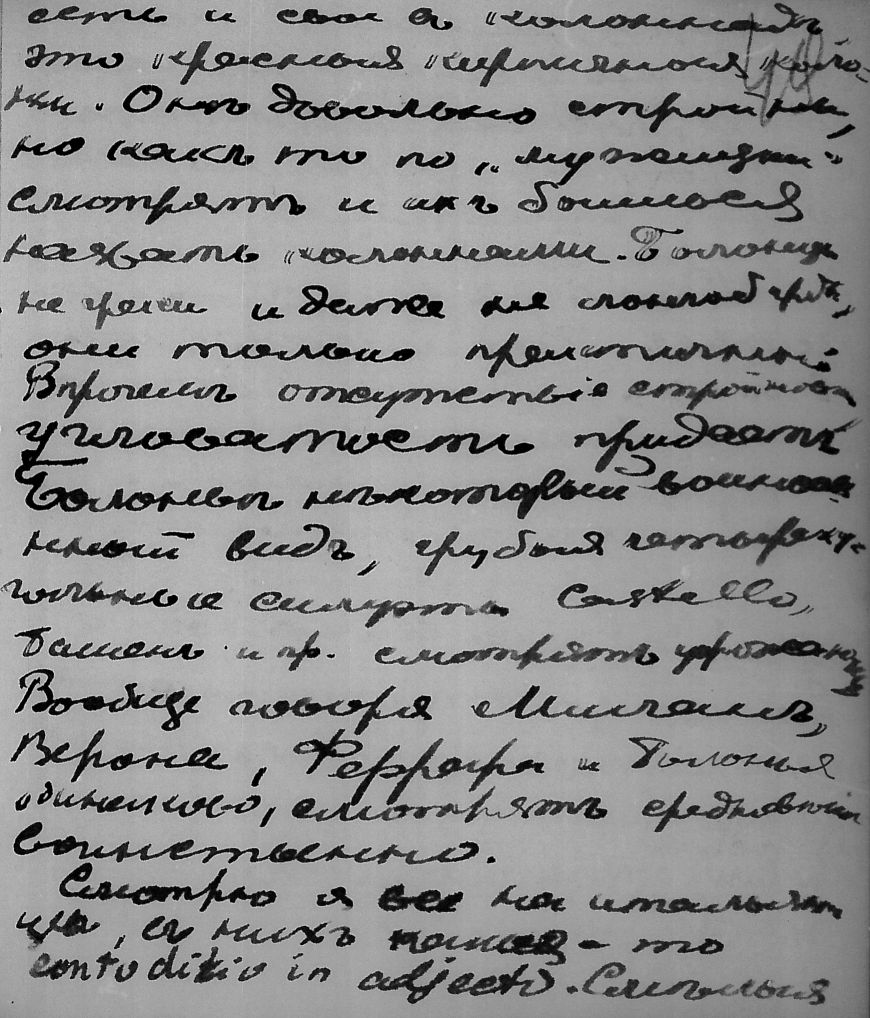 есть и своя колоннада
это красныя кирпичныя коло-
нки. Онѣ довольно стройны,
но какъ то по „мужицки“
смотрятъ и ихъ боишься
назвать колоннами. Болонцы
не греки и даже не
они только практичны.
Впрочемъ отсутствіе стройности
угловатость придаетъ
Болоньѣ нѣкоторый воинств-
нный видъ, грубыя четыреху-
гольныя силуэты Castello,
башенъ и пр. смотрятъ угрожающе
Вообще говоря Миланъ,
Верона, Феррара и Болонья
одинаково, смотрятъ средневѣково
воинственно.
Смотрю я все на итальян
цевъ, въ нихъ какая-то
contradictio in adjecto. Смѣлыя